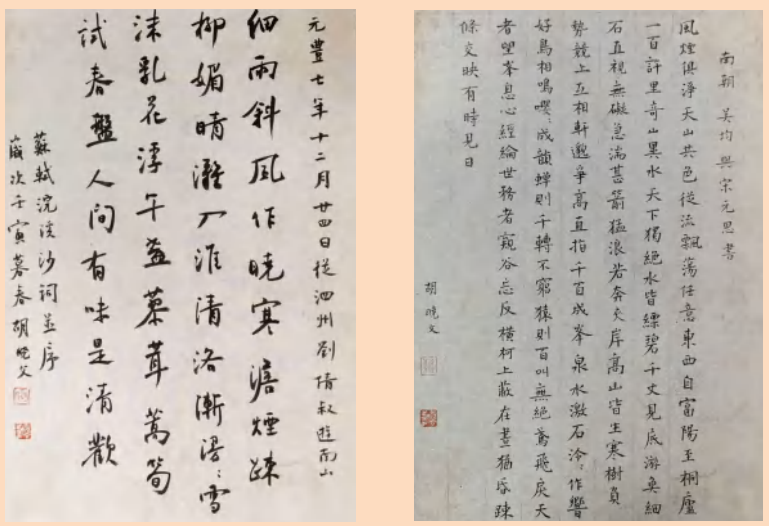 元豐七年十二月廿四日從泗州劉倩叔遊南山
細雨斜風作曉寒澹煙疎
柳媚晴灘入淮清洛漸漫〻雪
沫乳花浮午盞蓼茸蒿筍
試春盤人間有味是清歡
蘇軾浣溪沙詞並序
歲次壬寅暮春胡曉文
南朝 吳均與宋元思書
風煙俱淨天山共色從流飄蕩任意東西自富陽至桐廬
一百許里奇山異水天下獨絕水皆縹碧千丈見底游魚細
石直視無礙急湍甚箭猛浪若奔夾岸高山皆生寒樹負
勢競上互相軒邈爭高直指千百成峯泉水激石泠〻作響
好鳥相鳴嚶〻成韻蟬則千轉不窮猿則百叫無絕鳶飛戾天
者望峯息心經綸世務者窺谷忘反橫柯上蔽在晝猶昏疎
條交映有時見日
胡曉文